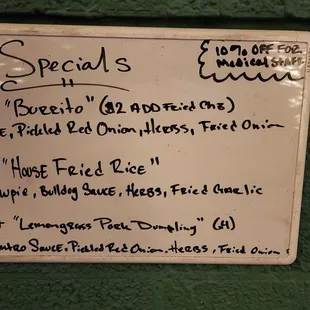 Specials
10% OFF FOR
Medical STAFF
"Burrito" ($2 ADD Fried Chz)
E, Pickled Red Onion, Herbs, Fried Onion
"House Fried Rice"
wpie, Bulldog Sauce, Herbs, Fried Garlic
"Lemongrass Pork Dumpling" (4)
ntro Sauce, Pickled Red Onion, Herbs, Fried Onion